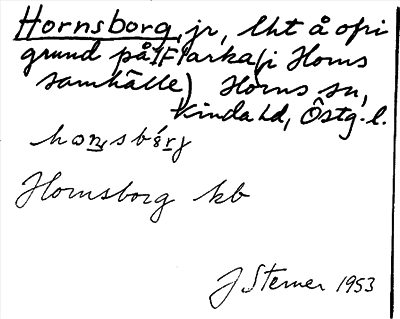 Hornsborg, jr, lht å ofri
grund på Flarka (i Horns
samhälle) Horns sn,
Kinda hd, Östg. l.
Hornsborg kb
J Sterner 1953